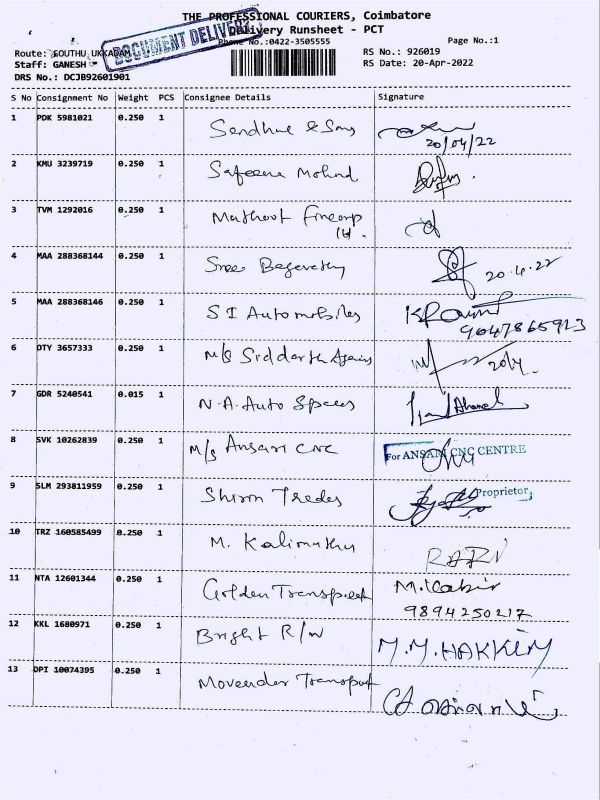 THE PROFESSIONAL COURIERS, Coimbatore
Delivery Runsheet - PCT
DOCUMENT DELIVERY
Phone No.:0422-3505555
Page No.:1
Route: SOUTHU UKKADAM
RS No.: 926019
Staff: GANESH -
RS Date: 20-Apr-2022
DRS No.: DCJB92601901
S No Consignment No Weight PCS Consignee Details Signature
1 PDK 5981021 0.250 1
20/04/22
2 KMU 3239719 0.250 1 Safeena Mohnd
3 TVM 1292016 0.250 1 Muthoot Fincorp
Ltd.
4 MAA 288368144 0.250 1 Sree 20.4.22
5 MAA 288368146 0.250 1 S I Automobiles
9047865923
6 OTY 3657333 0.250 1 M/s Siddarth 20/4.
7 GDR 5240541 0.015 1 N.A. Auto Ahamed
8 SVK 10262839 0.250 1 M/s Ansari CNC For ANSARI CNC CENTRE
9 SLM 293811959 0.250 1 Proprietor
10 TRZ 160585499 0.250 1 M. Kalimuthu
11 NTA 12601344 0.250 1 Golden Transport M. Kabir
9894250217
12 KKL 1680971 0.250 1 Bright R/W M.M. HAKKIM
13 DPI 10074395 0.250 1 Movender Transport